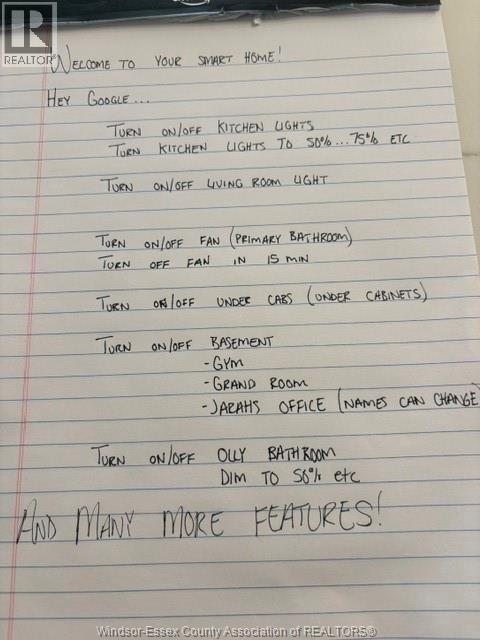 R
REALTOR®
WELCOME TO YOUR SMART HOME!
HEY GOOGLE...
TURN ON/OFF KITCHEN LIGHTS
TURN KITCHEN LIGHTS TO 50%...75% ETC
TURN ON/OFF LIVING ROOM LIGHT
TURN ON/OFF FAN (PRIMARY BATHROOM)
TURN OFF FAN IN 15 MIN
TURN ON/OFF UNDER CABS (UNDER CABINETS)
TURN ON/OFF BASEMENT
-GYM
-GRAND ROOM
-JARAHS OFFICE (NAMES CAN CHANGE)
TURN ON/OFF OLLY BATHROOM
DIM TO 50% etc
AND MANY MORE FEATURES!
Windsor-Essex County Association of REALTORS®